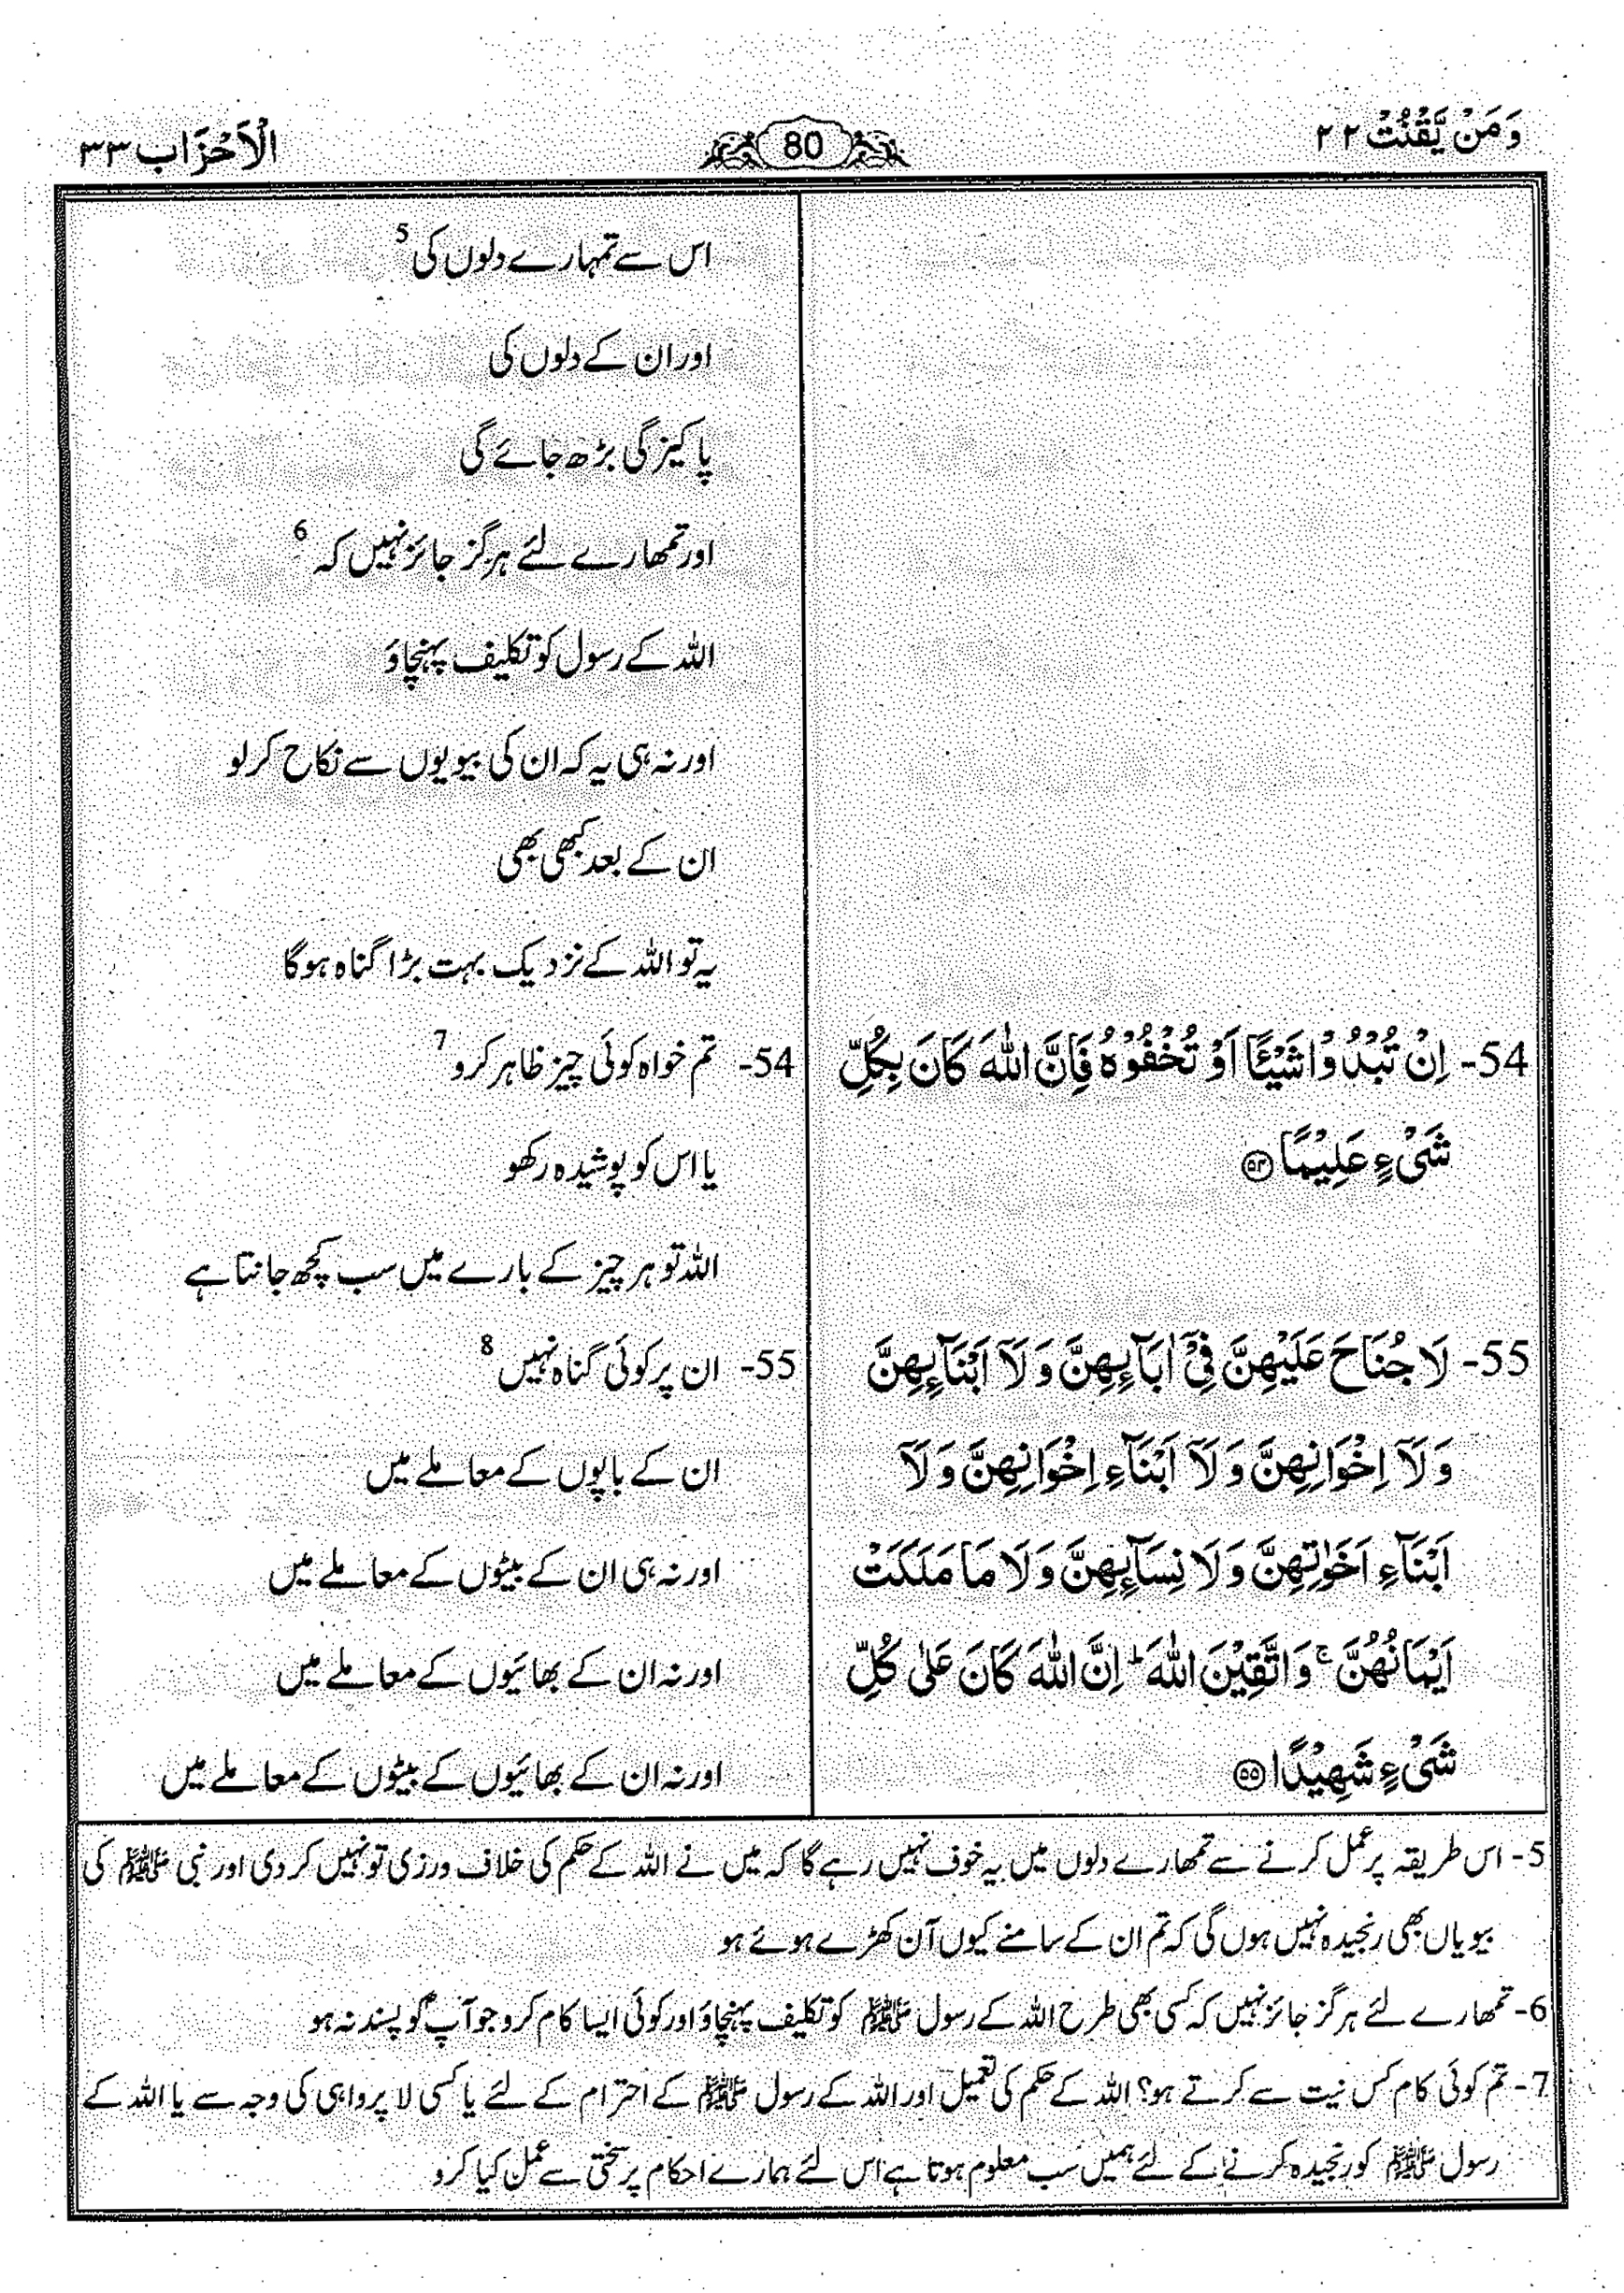 وَمَنْ يَّقْنُتْ ۲۲
80
الْاَحْزَاب ۳۳
اس سے تمہارے دلوں کی 5
اور ان کے دلوں کی
پاکیزگی بڑھ جائے گی
اور تمھارے لئے ہرگز جائز نہیں کہ 6
اللہ کے رسول کو تکلیف پہنچاؤ
اور نہ ہی یہ کہ ان کی بیویوں سے نکاح کر لو
ان کے بعد کبھی بھی
یہ تو اللہ کے نزدیک بہت بڑا گناہ ہوگا
54- اِنْ تُبْدُوْا شَيْـًٔا اَوْ تُخْفُوْهُ فَاِنَّ اللّٰهَ كَانَ بِكُلِّ
شَيْءٍ عَلِيْمًا ۝۵۴
54- تم خواہ کوئی چیز ظاہر کرو 7
یا اس کو پوشیدہ رکھو
اللہ تو ہر چیز کے بارے میں سب کچھ جانتا ہے
55- لَا جُنَاحَ عَلَيْهِنَّ فِيْٓ اٰبَآئِهِنَّ وَ لَآ اَبْنَآئِهِنَّ
وَ لَآ اِخْوَانِهِنَّ وَ لَآ اَبْنَآءِ اِخْوَانِهِنَّ وَ لَآ
اَبْنَآءِ اَخَوٰتِهِنَّ وَ لَا نِسَآئِهِنَّ وَ لَا مَا مَلَكَتْ
اَيْمَانُهُنَّ ۚ وَ اتَّقِيْنَ اللّٰهَ ؕ اِنَّ اللّٰهَ كَانَ عَلٰى كُلِّ
شَيْءٍ شَهِيْدًا ۝۵۵
55- ان پر کوئی گناہ نہیں 8
ان کے باپوں کے معاملے میں
اور نہ ہی ان کے بیٹوں کے معاملے میں
اور نہ ان کے بھائیوں کے معاملے میں
اور نہ ان کے بھائیوں کے بیٹوں کے معاملے میں
5- اس طریقہ پر عمل کرنے سے تمھارے دلوں میں یہ خوف نہیں رہے گا کہ میں نے اللہ کے حکم کی خلاف ورزی تو نہیں کر دی اور نبی ﷺ کی
بیویاں بھی رنجیدہ نہیں ہوں گی کہ تم ان کے سامنے کیوں آن کھڑے ہوئے ہو
6- تمھارے لئے ہرگز جائز نہیں کہ کسی بھی طرح اللہ کے رسول ﷺ کو تکلیف پہنچاؤ اور کوئی ایسا کام کرو جو آپؐ کو پسند نہ ہو
7- تم کوئی کام کس نیت سے کرتے ہو؟ اللہ کے حکم کی تعمیل اور اللہ کے رسول ﷺ کے احترام کے لئے یا کسی لا پرواہی کی وجہ سے یا اللہ کے
رسول ﷺ کو رنجیدہ کرنے کے لئے ہمیں سب معلوم ہوتا ہے اس لئے ہمارے احکام پر سختی سے عمل کیا کرو